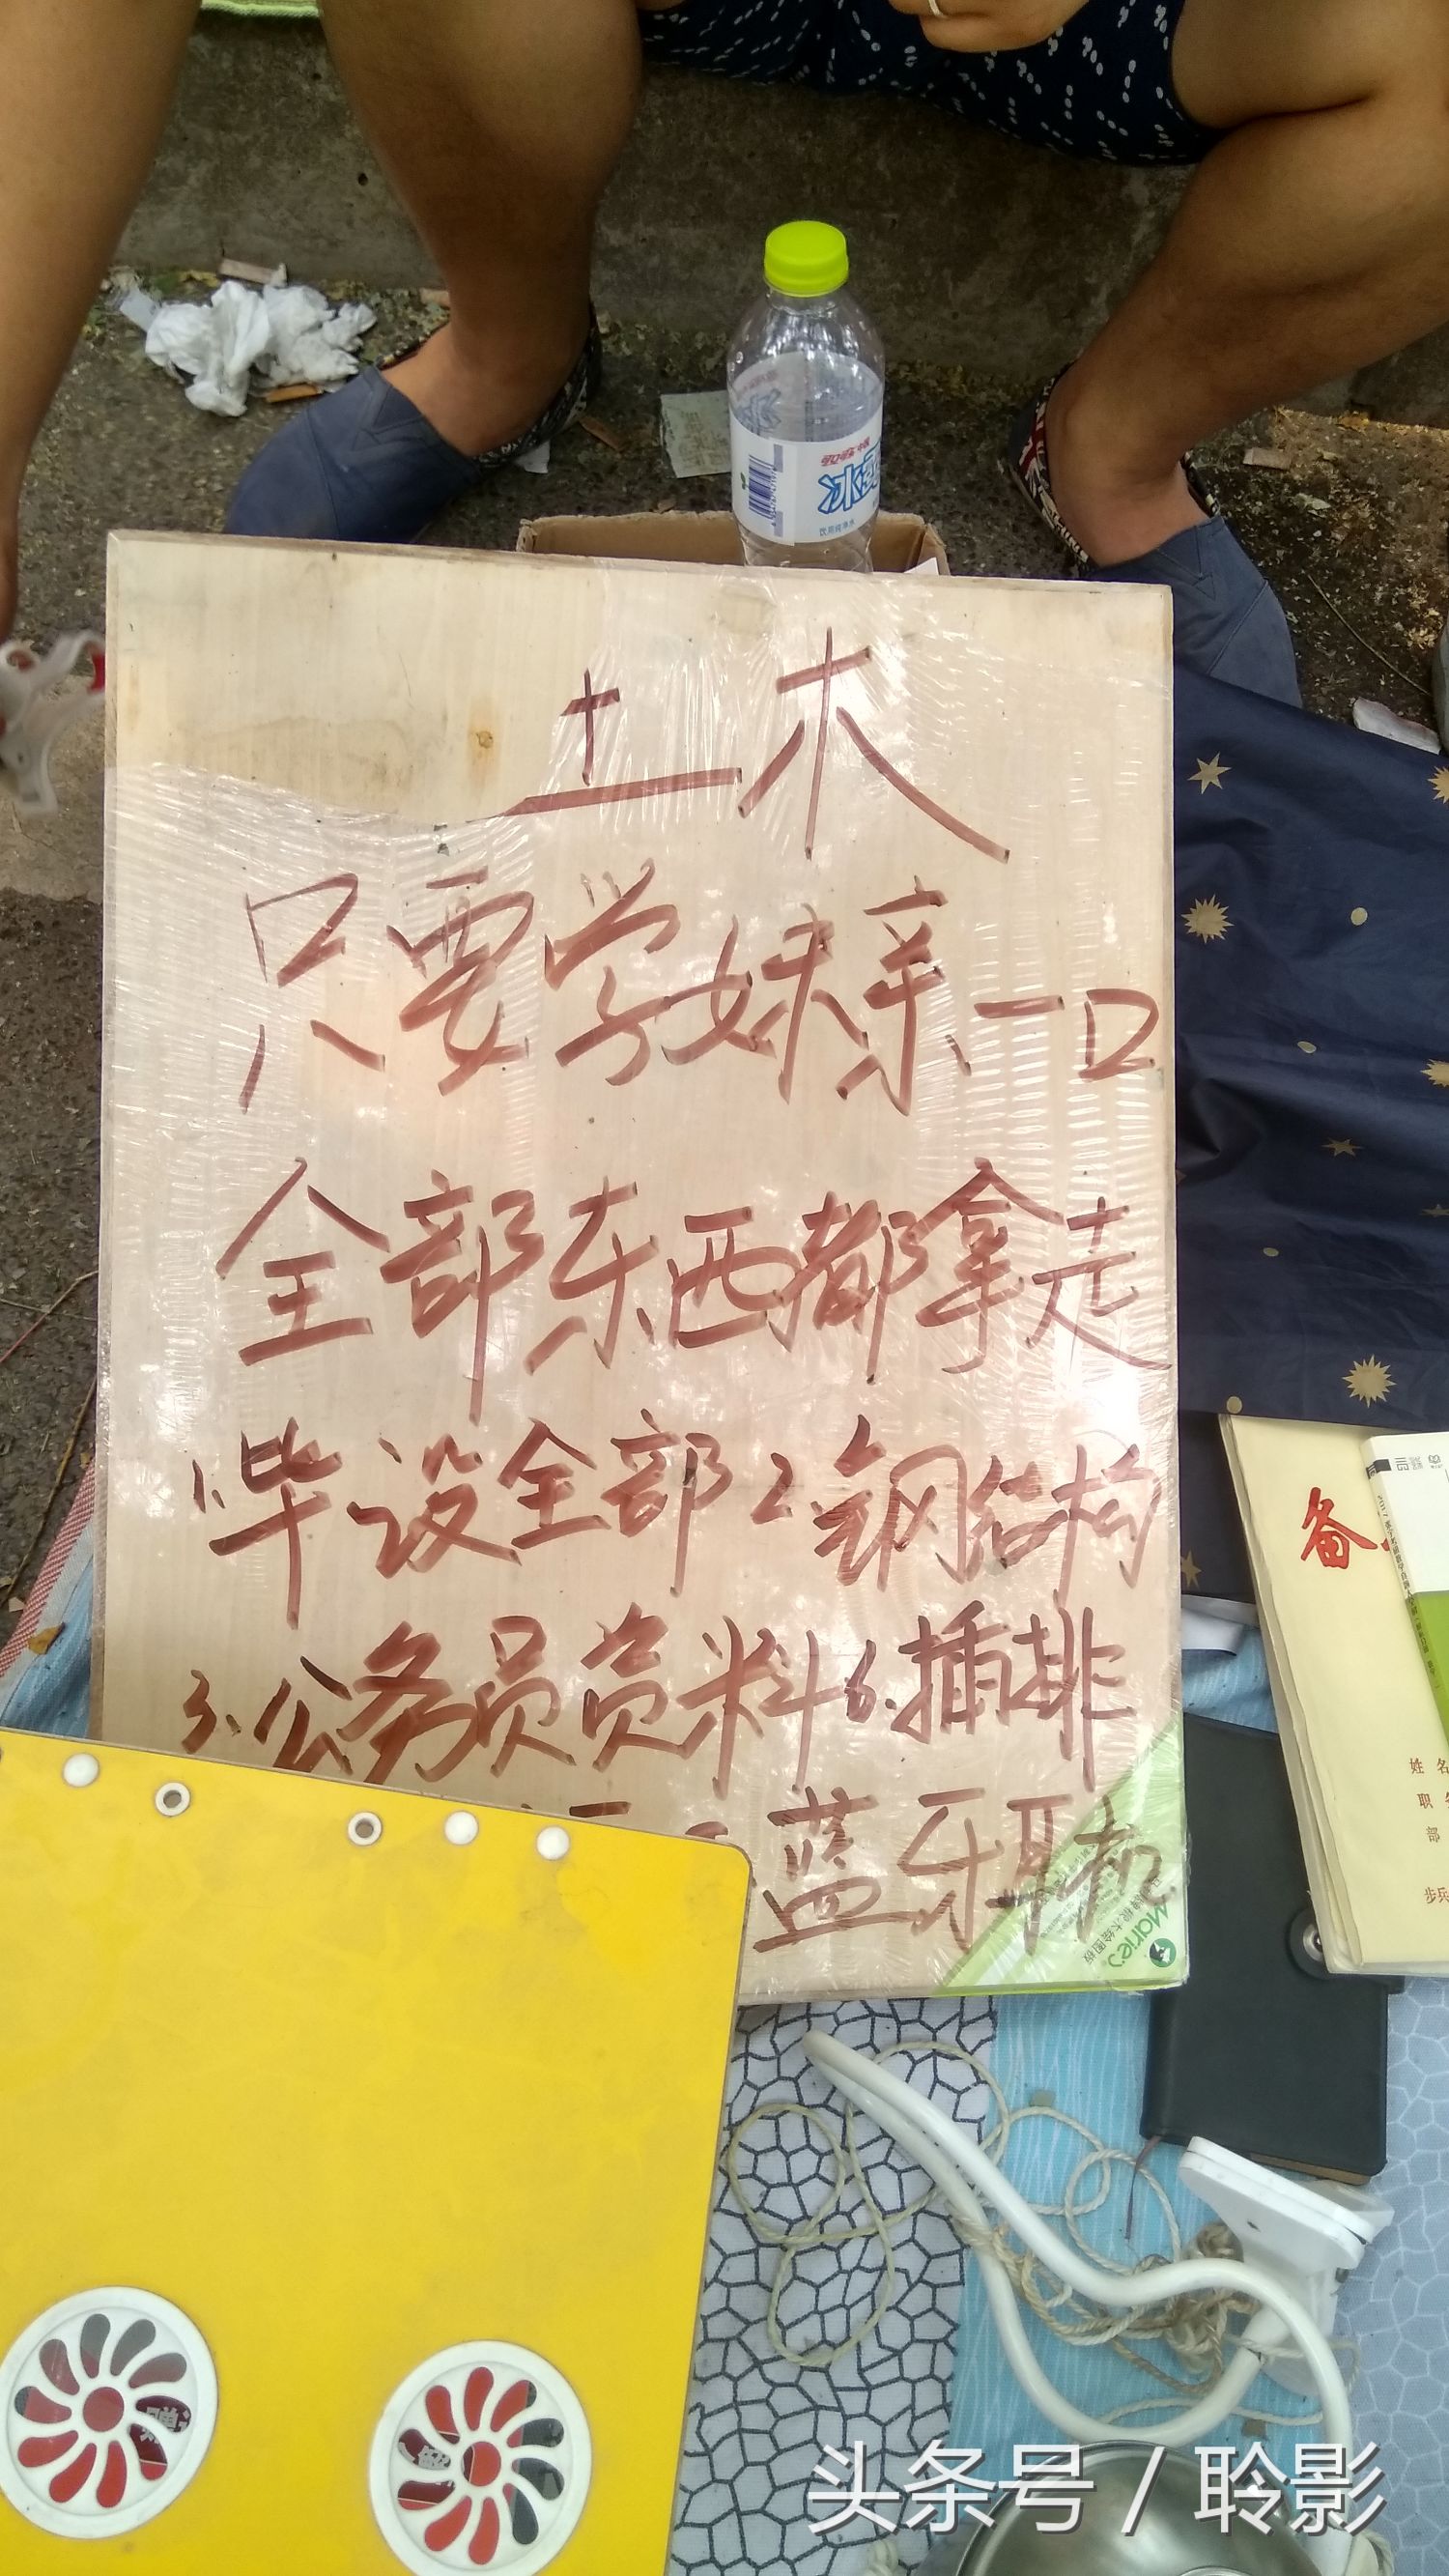 冰露
饮用纯净水
土木
只要学妹亲一口
全部东西都拿走
1.毕设全部 2.钢结构
3.公务员资料 6.插排
蓝牙耳机
Marie's
木绘图板
备
姓名
职
部
步兵
头条号 / 聆影